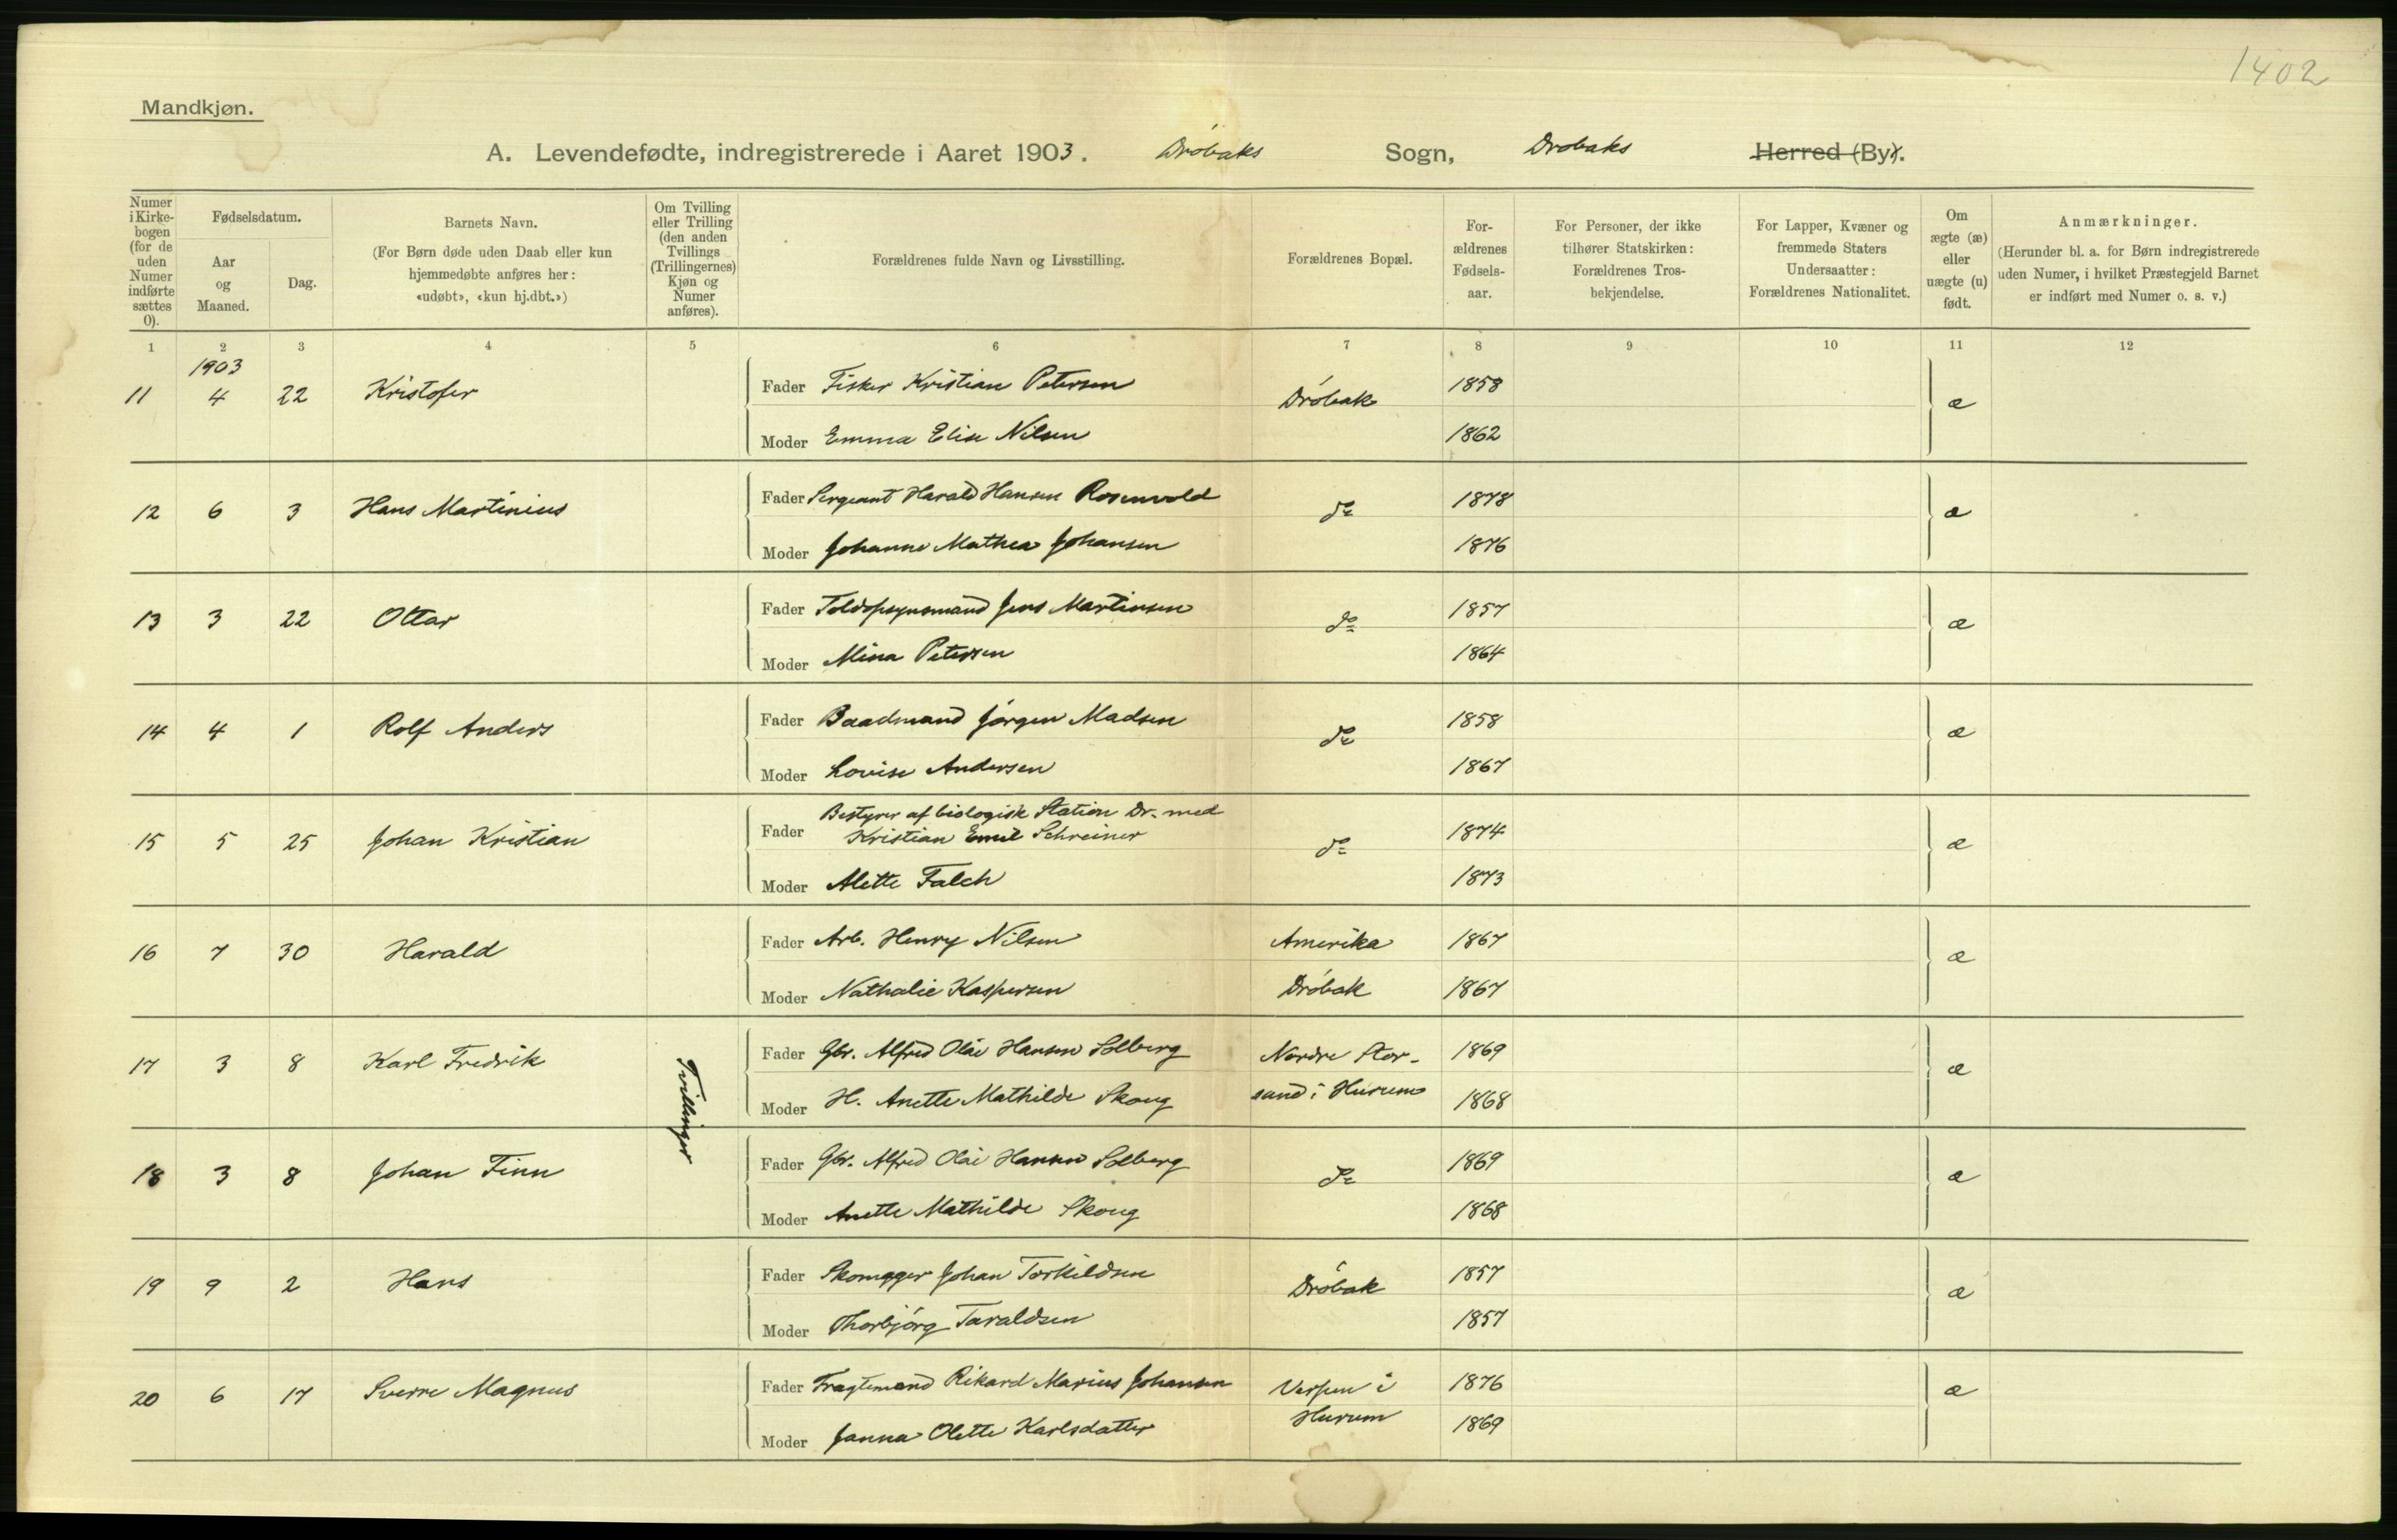 1402
Mandkjøn.
A. Levendefødte, indregistrerede i Aaret 1903. Drøbaks Sogn, Drøbaks Herred (By).
Numer i Kirke- bogen (for de uden Numer indførte sættes 0).
Fødselsdatum.
Aar og Maaned.
Dag.
Barnets Navn.
(For Børn døde uden Daab eller kun
hjemmedøbte anføres her:
«udøbt», «kun hj.dbt.»)
Om Tvilling
eller Trilling
(den anden
Tvillings
(Trillingernes)
Kjøn og
Numer
anføres).
Forældrenes fulde Navn og Livsstilling.
Forældrenes Bopæl.
For-
ældrenes
Fødsels-
aar.
For Personer, der ikke
tilhører Statskirken:
Forældrenes Tros-
bekjendelse.
For Lapper, Kvæner og
fremmede Staters
Undersaatter:
Forældrenes Nationalitet.
Om
ægte (æ)
eller
uægte (u)
født.
Anmærkninger.
(Herunder bl. a. for Børn indregistrerede
uden Numer, i hvilket Præstegjeld Barnet
er indført med Numer o. s. v.)
1 2 3 4 5 6 7 8 9 10 11 12
1903
11 4 22 Kristofer Fader Fisker Kristian Petersen Drøbak 1858 æ
Moder Emma Elise Nilsen 1862
12 6 3 Hans Martinius Fader Sergeant Harald Hansen Rosenvold do 1878 æ
Moder Johanne Mathea Johansen 1876
13 3 22 Ottar Fader Toldopsynsmand Jens Martinsen do 1857 æ
Moder Mina Petersen 1864
14 4 1 Rolf Anders Fader Baadmand Jørgen Madsen do 1858 æ
Moder Lovise Andersen 1867
15 5 25 Johan Kristian Fader Bestyrer af biologisk Station Dr. med
Kristian Emil Schreiner do 1874 æ
Moder Alette Falch 1873
16 7 30 Harald Fader Arb. Henry Nilsen Amerika 1867 æ
Moder Nathalie Kaspersen Drøbak 1867
Tvillinger
17 3 8 Karl Fredrik Fader Gbr. Alfred Olai Hansen Solberg Nordre Stor- 1869 æ
Moder H. Anette Mathilde Skoug sand i Hurum 1868
18 3 8 Johan Finn Fader Gbr. Alfred Olai Hansen Solberg do 1869 æ
Moder Anette Mathilde Skoug 1868
19 9 2 Hans Fader Skomager Johan Torkildsen Drøbak 1857 æ
Moder Thorbjørg Taraldsen 1857
20 6 17 Sverre Magnus Fader Fragtemand Rikard Marius Johansen Verpen i 1876 æ
Moder Janna Olette Karlsdatter Hurum 1869